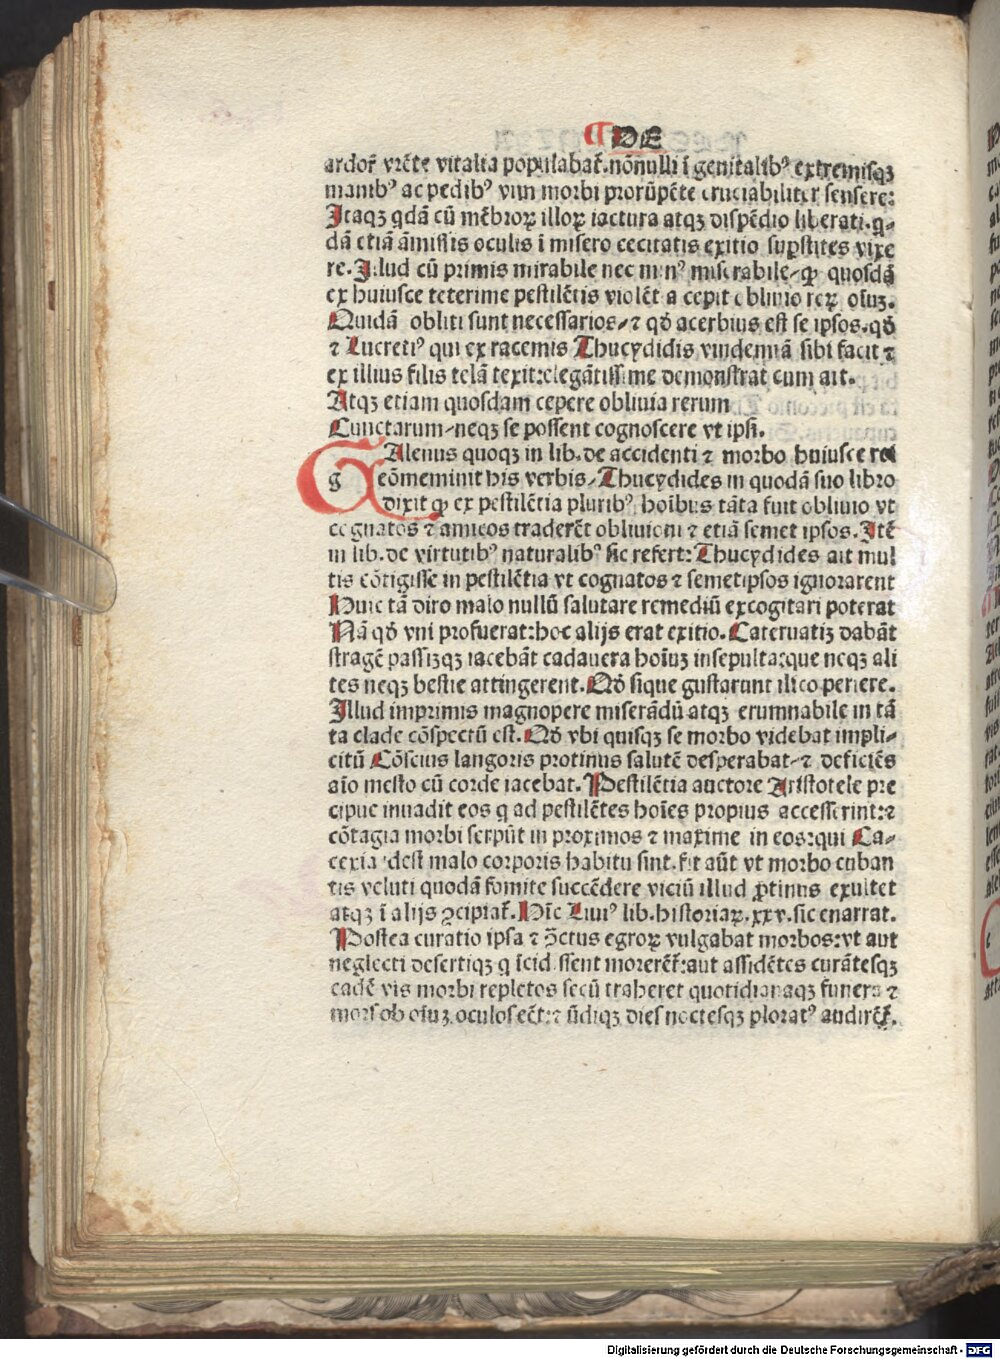 ¶ DE
ardor̃ vrẽte vitalia populabat̃. nõnulli ĩ genitalibꝰ extremisqꝫ
manibꝰ ac pedibꝰ vim morbi prorũpẽte cruciabiliter sensere:
Itaqꝫ qdã cũ mẽbroꝝ illoꝝ iactura atqꝫ dispẽdio liberati. q-
dã etiã ãmissis oculis ĩ misero cecitatis exitio suꝑstites vixe
re. Illud cũ primis mirabile nec minꝰ miserabile/ ꝙ quosdã
ex huiusce teterime pestilẽtis violẽt a cepit obliuio reꝝ oĩuꝫ.
Quidã obliti sunt necessarios/ ⁊ qð acerbius est se ipsos. qð
⁊ Lucretiꝰ qui ex racemis Thucydidis vindemiã sibi facit ⁊
ex illius filis telã texit: elegãtissime demonstrat cum ait.
Atqꝫ etiam quosdam cepere obliuia rerum
Cunctarum/ neqꝫ se possent cognoscere vt ipsi.
gAlenus quoqꝫ in lib. de accidenti ⁊ morbo huiusce rei
eõmeminit his verbis/ Thucydides in quodã suo libro
dixit ꝙ ex pestilẽtia pluribꝰ hoĩbus tãta fuit obliuio vt
cognatos ⁊ amicos traderẽt obliuioni ⁊ etiã semet ipsos. Itẽ
in lib. de virtutibꝰ naturalibꝰ sic refert: Thucydides ait mul
tis cõtigisse in pestilẽtia vt cognatos ⁊ semetipsos ignorarent
Huic tã diro malo nullũ salutare remediũ excogitari poterat
Nã qð vni profuerat: hoc alijs erat exitio. Cateruatiꝫ dabãt
stragẽ passiꝫqꝫ iacebãt cadauera hoĩuꝫ insepulta: que neqꝫ ali
tes neqꝫ bestie attingerent. Qð sique gustarunt ilico periere.
Illud imprimis magnopere miserãdũ atqꝫ erumnabile in tã
ta clade cõspectũ est. Qð vbi quisqꝫ se morbo videbat impli/
citũ Cõscius langoris protinus salutẽ desperabat/ ⁊ deficiẽs
aĩo mesto cũ corde iacebat. Pestilẽtia auctore Aristotele pre
cipue inuadit eos q ad pestilẽtes hoĩes propius accesserint: ⁊
cõtagia morbi serpũt in proximos ⁊ maxime in eos: qui Ca/
cexia idest malo corporis habitu sint. fit aũt vt morbo cuban
tis veluti quodã fomite succẽdere viciũ illud ꝓtinus exultet
atqꝫ ĩ alijs ꝯcipiat̃. Hĩc Liuiꝰ lib. historiaꝝ. xxv. sic enarrat.
Postea curatio ipsa ⁊ ꝯ̃ctus egroꝝ vulgabat morbos: vt aut
neglecti desertiqꝫ q ĩcidissent morerẽt̃: aut assidẽtes curãtesqꝫ
eadẽ vis morbi repletos secũ traheret quotidianaqꝫ funera ⁊
mors ob oĩuꝫ oculos eẽt: ⁊ ũdiqꝫ dies noctesqꝫ ploratꝰ audirẽt̃.
Digitalisierung gefördert durch die Deutsche Forschungsgemeinschaft - DFG